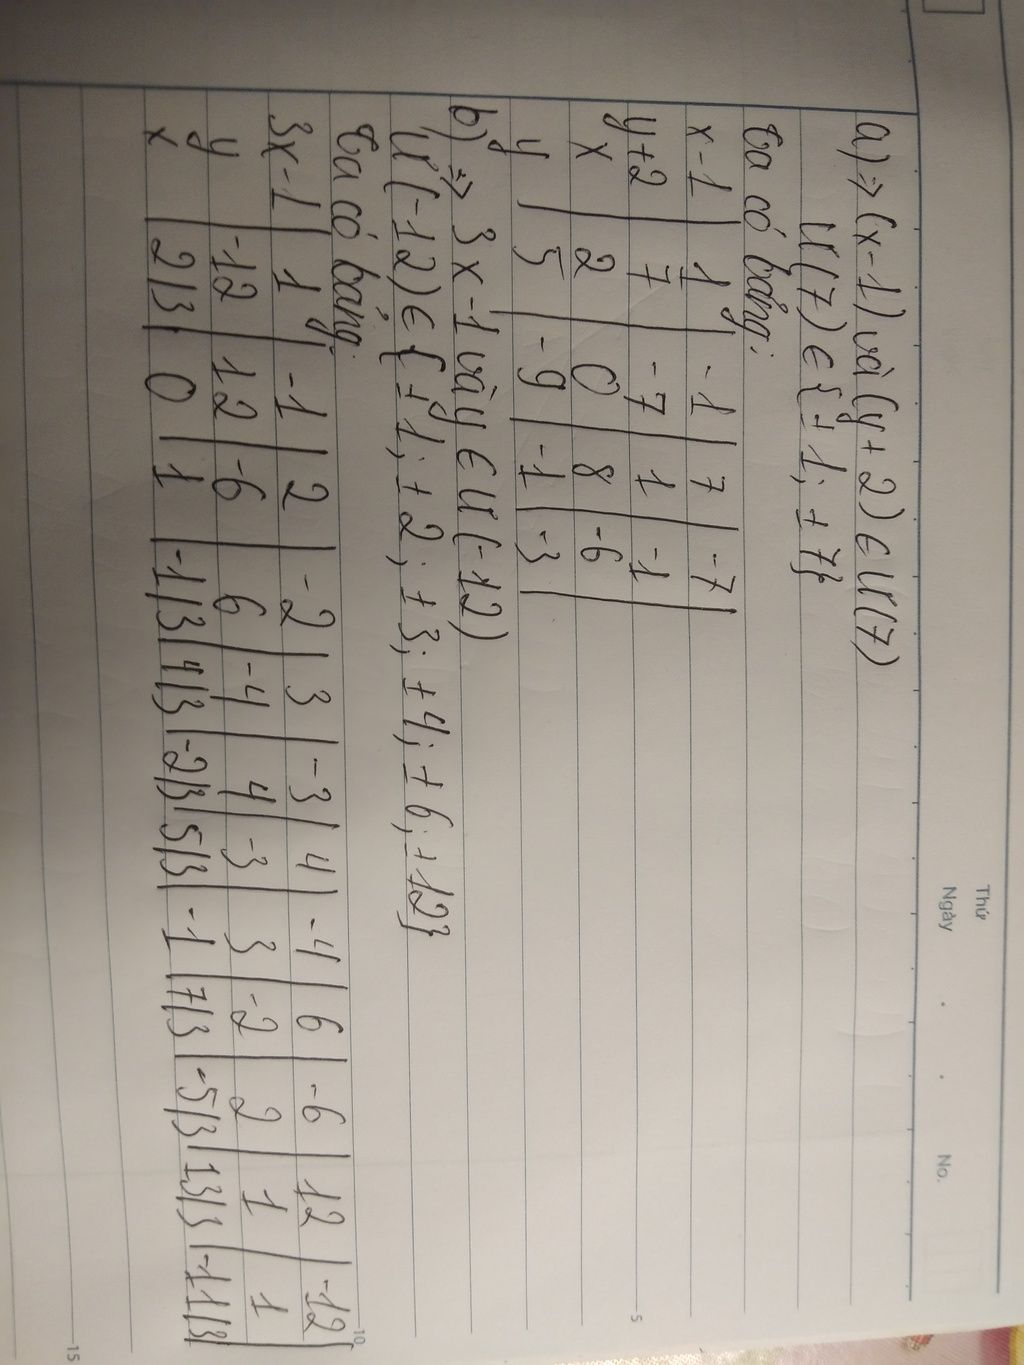 Thứ
Ngày . . No.
a) => (x-1) và (y+2) ∈ Ư(7)
Ư(7) ∈ {±1; ±7}
ta có bảng:
x-1 | 1 | -1 | 7 | -7 |
y+2 | 7 | -7 | 1 | -1
x | 2 | 0 | 8 | -6 |
y | 5 | -9 | -1 | -3 |
b) => 3x-1 và y ∈ Ư(-12)
Ư(-12) ∈ {±1; ±2; ±3; ±4; ±6; ±12}
ta có bảng:
3x-1 | 1 | -1 | 2 | -2 | 3 | -3 | 4 | -4 | 6 | -6 | 12 | -12 |
y | -12 | 12 | -6 | 6 | -4 | 4 | -3 | 3 | -2 | 2 | 1 | 1
x | 2/3 | 0 | 1 | -1/3 | 4/3 | -2/3 | 5/3 | -1 | 7/3 | -5/3 | 13/3 | -11/3 |
5
10
15